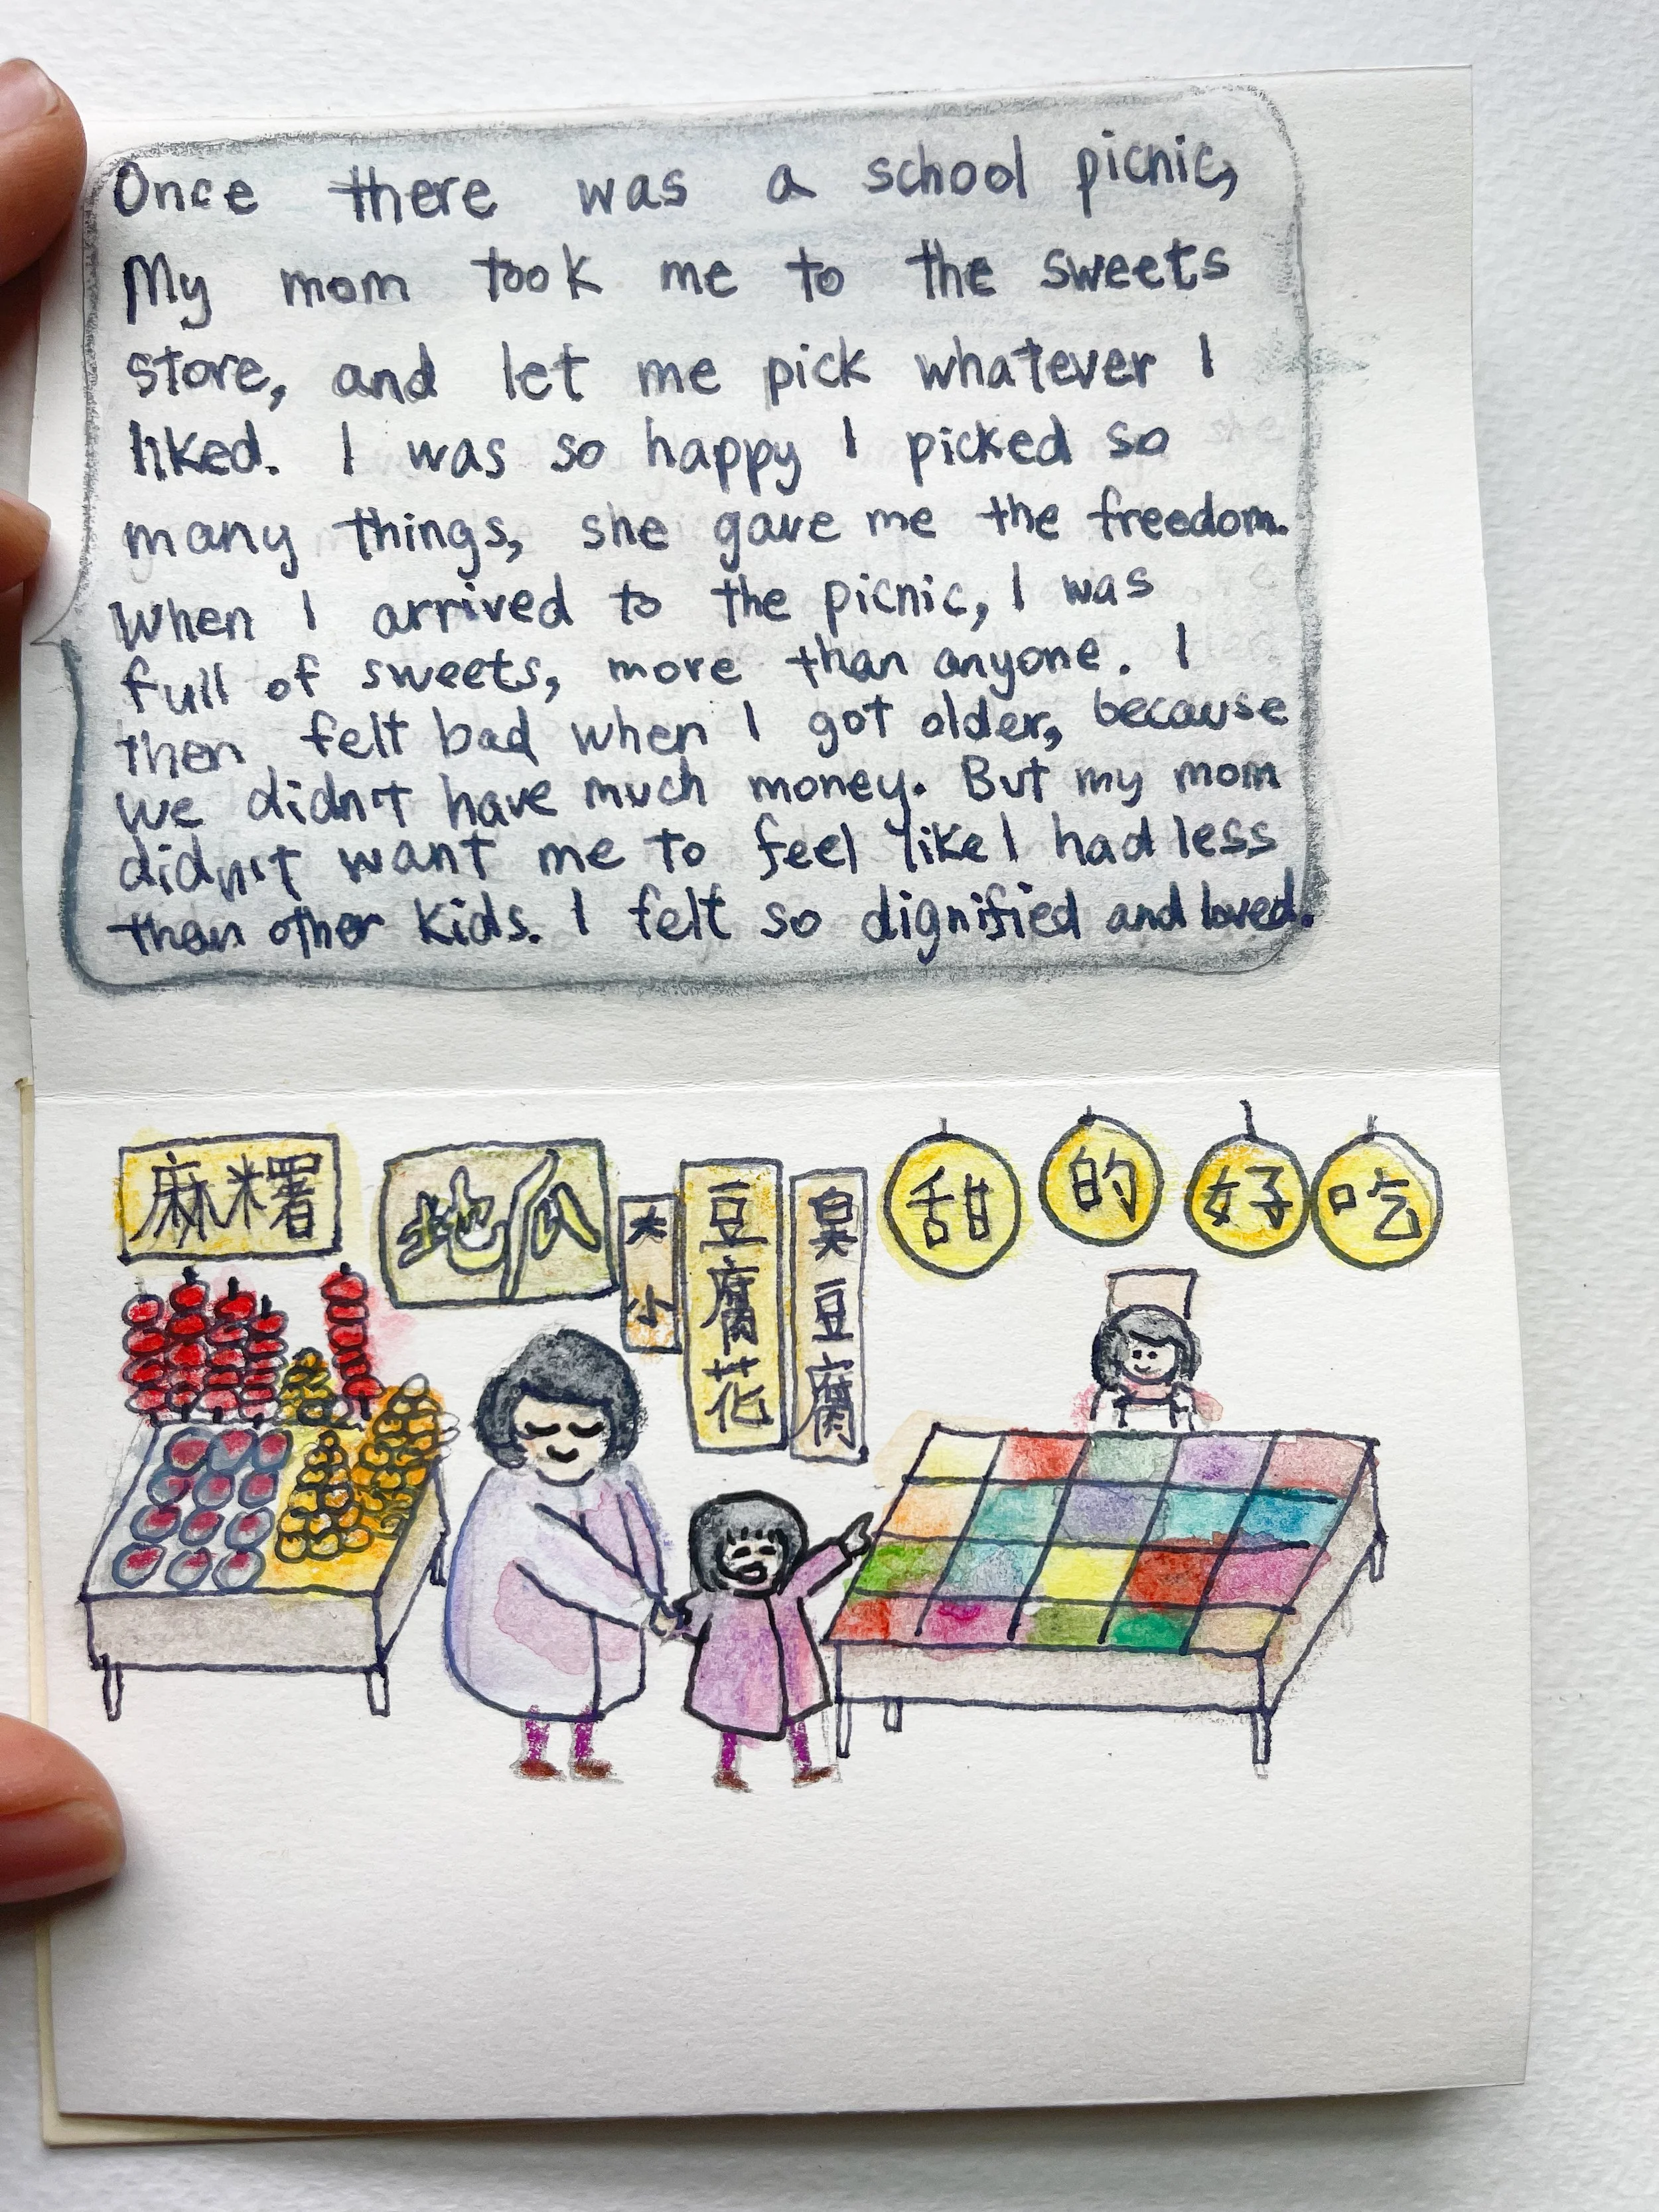 Once there was a school picnic,
My mom took me to the sweets
store, and let me pick whatever I
liked. I was so happy I picked so
many things, she gave me the freedom.
When I arrived to the picnic, I was
full of sweets, more than anyone. I
then felt bad when I got older, because
we didn't have much money. But my mom
didn't want me to feel like I had less
than other kids. I felt so dignified and loved.
麻糬
地瓜
大小
豆腐花
臭豆腐
甜的好吃